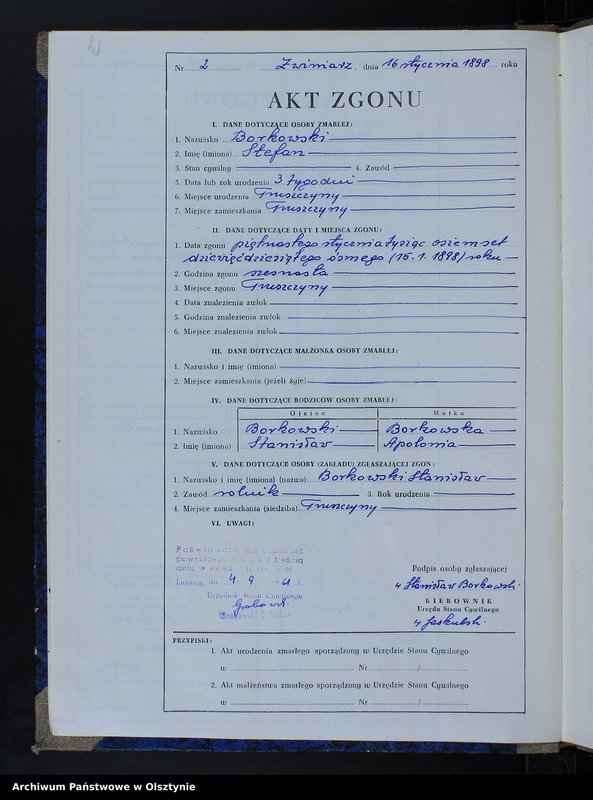 2
Nr 2 Zwiniarz, dnia 16 stycznia 1898 roku
AKT ZGONU
I. DANE DOTYCZĄCE OSOBY ZMARŁEJ:
1. Nazwisko Borkowski
2. Imię (imiona) Stefan
3. Stan cywilny 4. Zawód
5. Data lub rok urodzenia 3 tygodni
6. Miejsce urodzenia Truszczyny
7. Miejsce zamieszkania Truszczyny
II. DANE DOTYCZĄCE DATY I MIEJSCA ZGONU:
1. Data zgonu piętnastego stycznia tysiąc osiemset
dziewięćdziesiątego ósmego (15.1.1898) roku
2. Godzina zgonu szesnasta
3. Miejsce zgonu Truszczyny
4. Data znalezienia zwłok
5. Godzina znalezienia zwłok
6. Miejsce znalezienia zwłok
III. DANE DOTYCZĄCE MAŁŻONKA OSOBY ZMARŁEJ:
1. Nazwisko i imię (imiona)
2. Miejsce zamieszkania (jeżeli żyje)
IV. DANE DOTYCZĄCE RODZICÓW OSOBY ZMARŁEJ:
Ojciec Matka
1. Nazwisko Borkowski Borkowska
2. Imię (imiona) Stanisław Apolonia
V. DANE DOTYCZĄCE OSOBY (ZAKŁADU) ZGŁASZAJĄCEJ ZGON:
1. Nazwisko i imię (imiona) (nazwa) Borkowski Stanisław
2. Zawód rolnik 3. Rok urodzenia
4. Miejsce zamieszkania (siedziba) Truszczyny
VI. UWAGI:
Poświadcza się zgodność
powyższego z treścią
aktu w
Lubawa, dn. 4. 9 61 r.
Urzędnik Stanu Cywilnego
Podpis osoby zgłaszającej
Stanisław Borkowski
KIEROWNIK
Urzędu Stanu Cywilnego
Jaskulski
PRZYPISKI:
1. Akt urodzenia zmarłego sporządzony w Urzędzie Stanu Cywilnego
w Nr /
2. Akt małżeństwa zmarłego sporządzony w Urzędzie Stanu Cywilnego
w Nr /
Archiwum Państwowe w Olsztynie